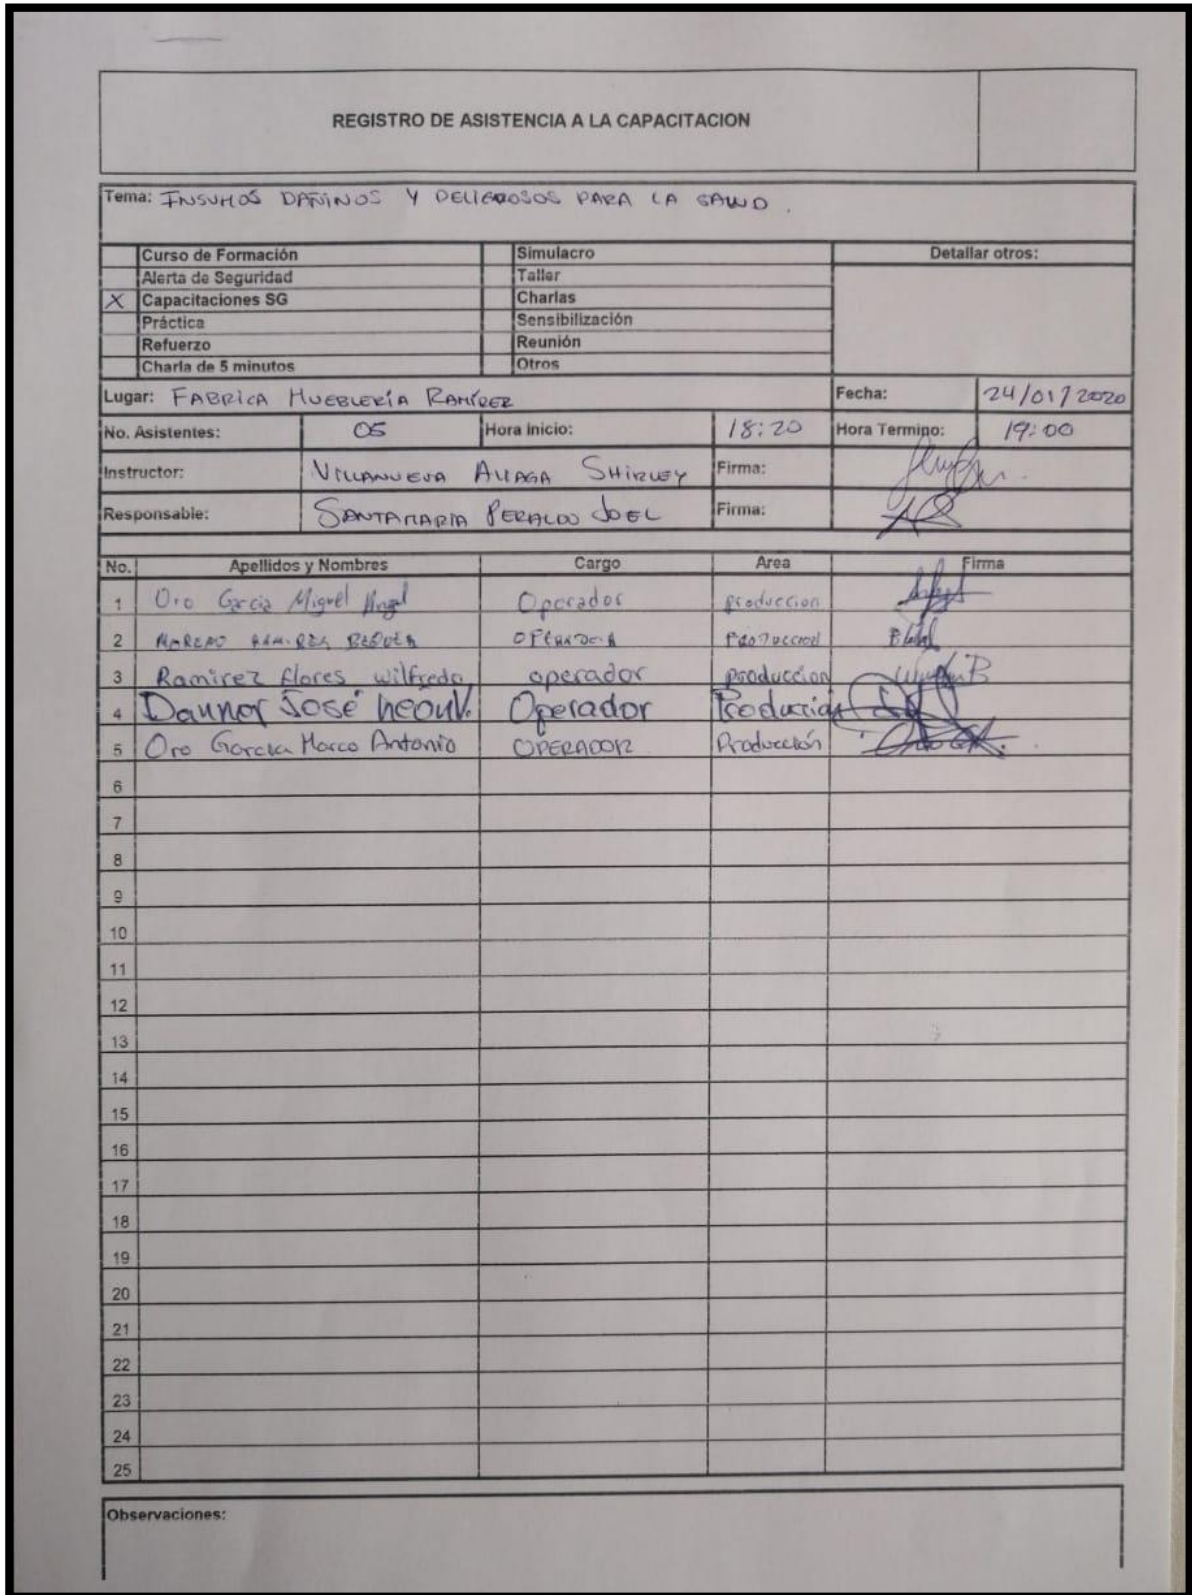 REGISTRO DE ASISTENCIA A LA CAPACITACION
Tema: INSUMOS DAÑINOS Y PELIGROSOS PARA LA SALUD.
Curso de Formación Simulacro Detallar otros:
Alerta de Seguridad Taller
X Capacitaciones SG Charlas
Práctica Sensibilización
Refuerzo Reunión
Charla de 5 minutos Otros
Lugar: FABRICA MUEBLERÍA RAMÍREZ Fecha: 24/01/2020
No. Asistentes: 05 Hora Inicio: 18:20 Hora Termino: 19:00
Instructor: VILLANUEVA ALIAGA SHIRLEY Firma:
Responsable: SANTAMARIA PERALDO JOEL Firma:
No. Apellidos y Nombres Cargo Area Firma
1 Oro Garcia Miguel Angel Operador produccion
2 MORENO RAMIREZ OPERADOR PRODUCCION
3 Ramirez flores wilfredo operador produccion
4 Dannor José León V. Operador Producción
5 Oro Garcia Marco Antonio OPERADOR Producción
6
7
8
9
10
11
12
13
14
15
16
17
18
19
20
21
22
23
24
25
Observaciones: